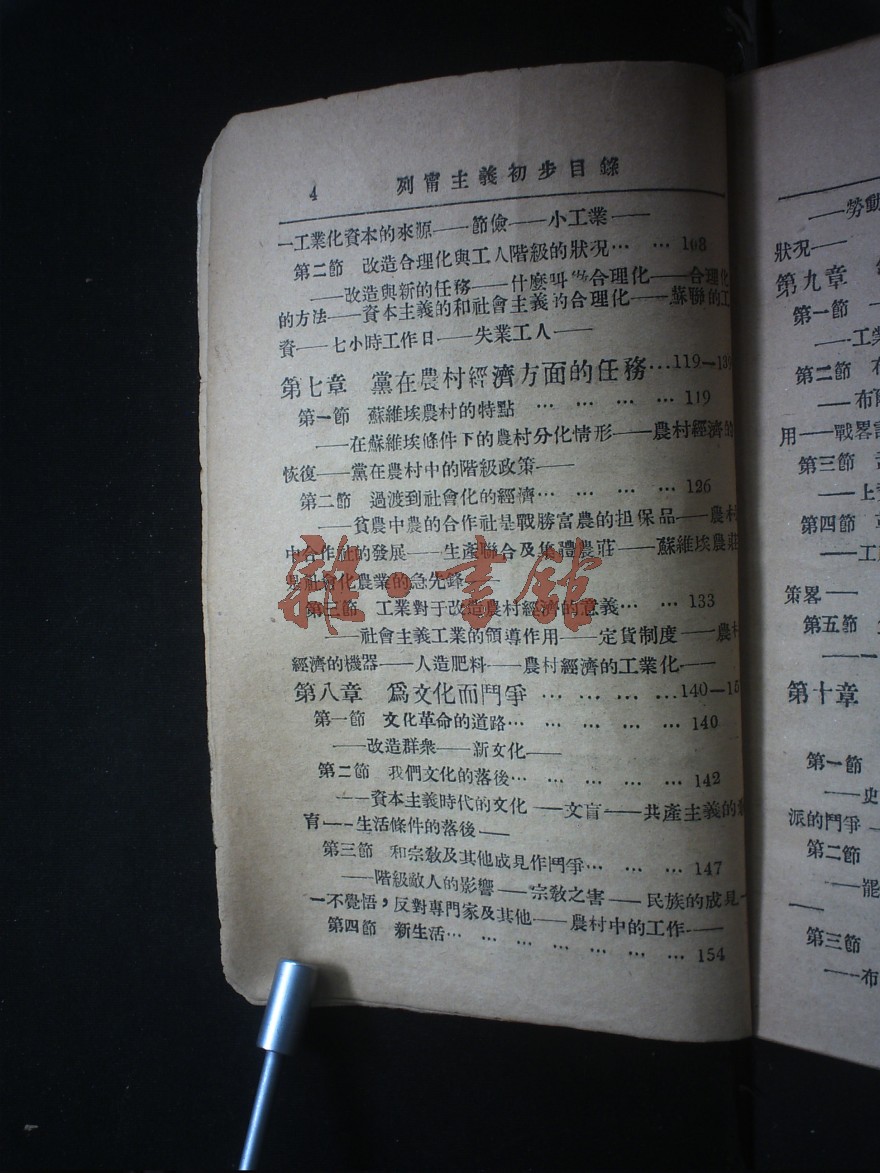 4 列甯主義初步目錄
—工業化資本的來源——節儉——小工業——
第二節 改造合理化與工人階級的狀况… … 108
——改造與新的任務——什麼叫做合理化——合理化
的方法——資本主義的和社會主義的合理化——蘇聯的工
資——七小時工作日——失業工人——
第七章 黨在農村經濟方面的任務…119—139
第一節 蘇維埃農村的特點 … … … … 119
——在蘇維埃條件下的農村分化情形——農村經濟的
恢復——黨在農村中的階級政策——
第二節 過渡到社會化的經濟… … … … 126
——貧農中農的合作社是戰勝富農的担保品——農村
中合作社的發展——生產聯合及集體農莊——蘇維埃農莊
是社會化農業的急先鋒——
第三節 工業對于改造農村經濟的意義… … 133
——社會主義工業的領導作用——定貨制度——農村
經濟的機器——人造肥料——農村經濟的工業化——
第八章 爲文化而鬥爭 … … … …140—15
第一節 文化革命的道路… … … … … 140
——改造群衆——新文化——
第二節 我們文化的落後… … … … … 142
——資本主義時代的文化——文盲——共產主義的
育——生活條件的落後——
第三節 和宗敎及其他成見作鬥爭… … … 147
——階級敵人的影響——宗敎之害——民族的成見—
—不覺悟，反對專門家及其他——農村中的工作——
第四節 新生活… … … … … … … 154
雜·書館
——勞動
狀况——
第九章
第一節
——工業
第二節
——布
用——戰畧
第三節
——上
第四節
——工
策畧——
第五節
——一
第十章
第一節
——史
派的鬥爭
第二節
——罷
——
第三節
——布